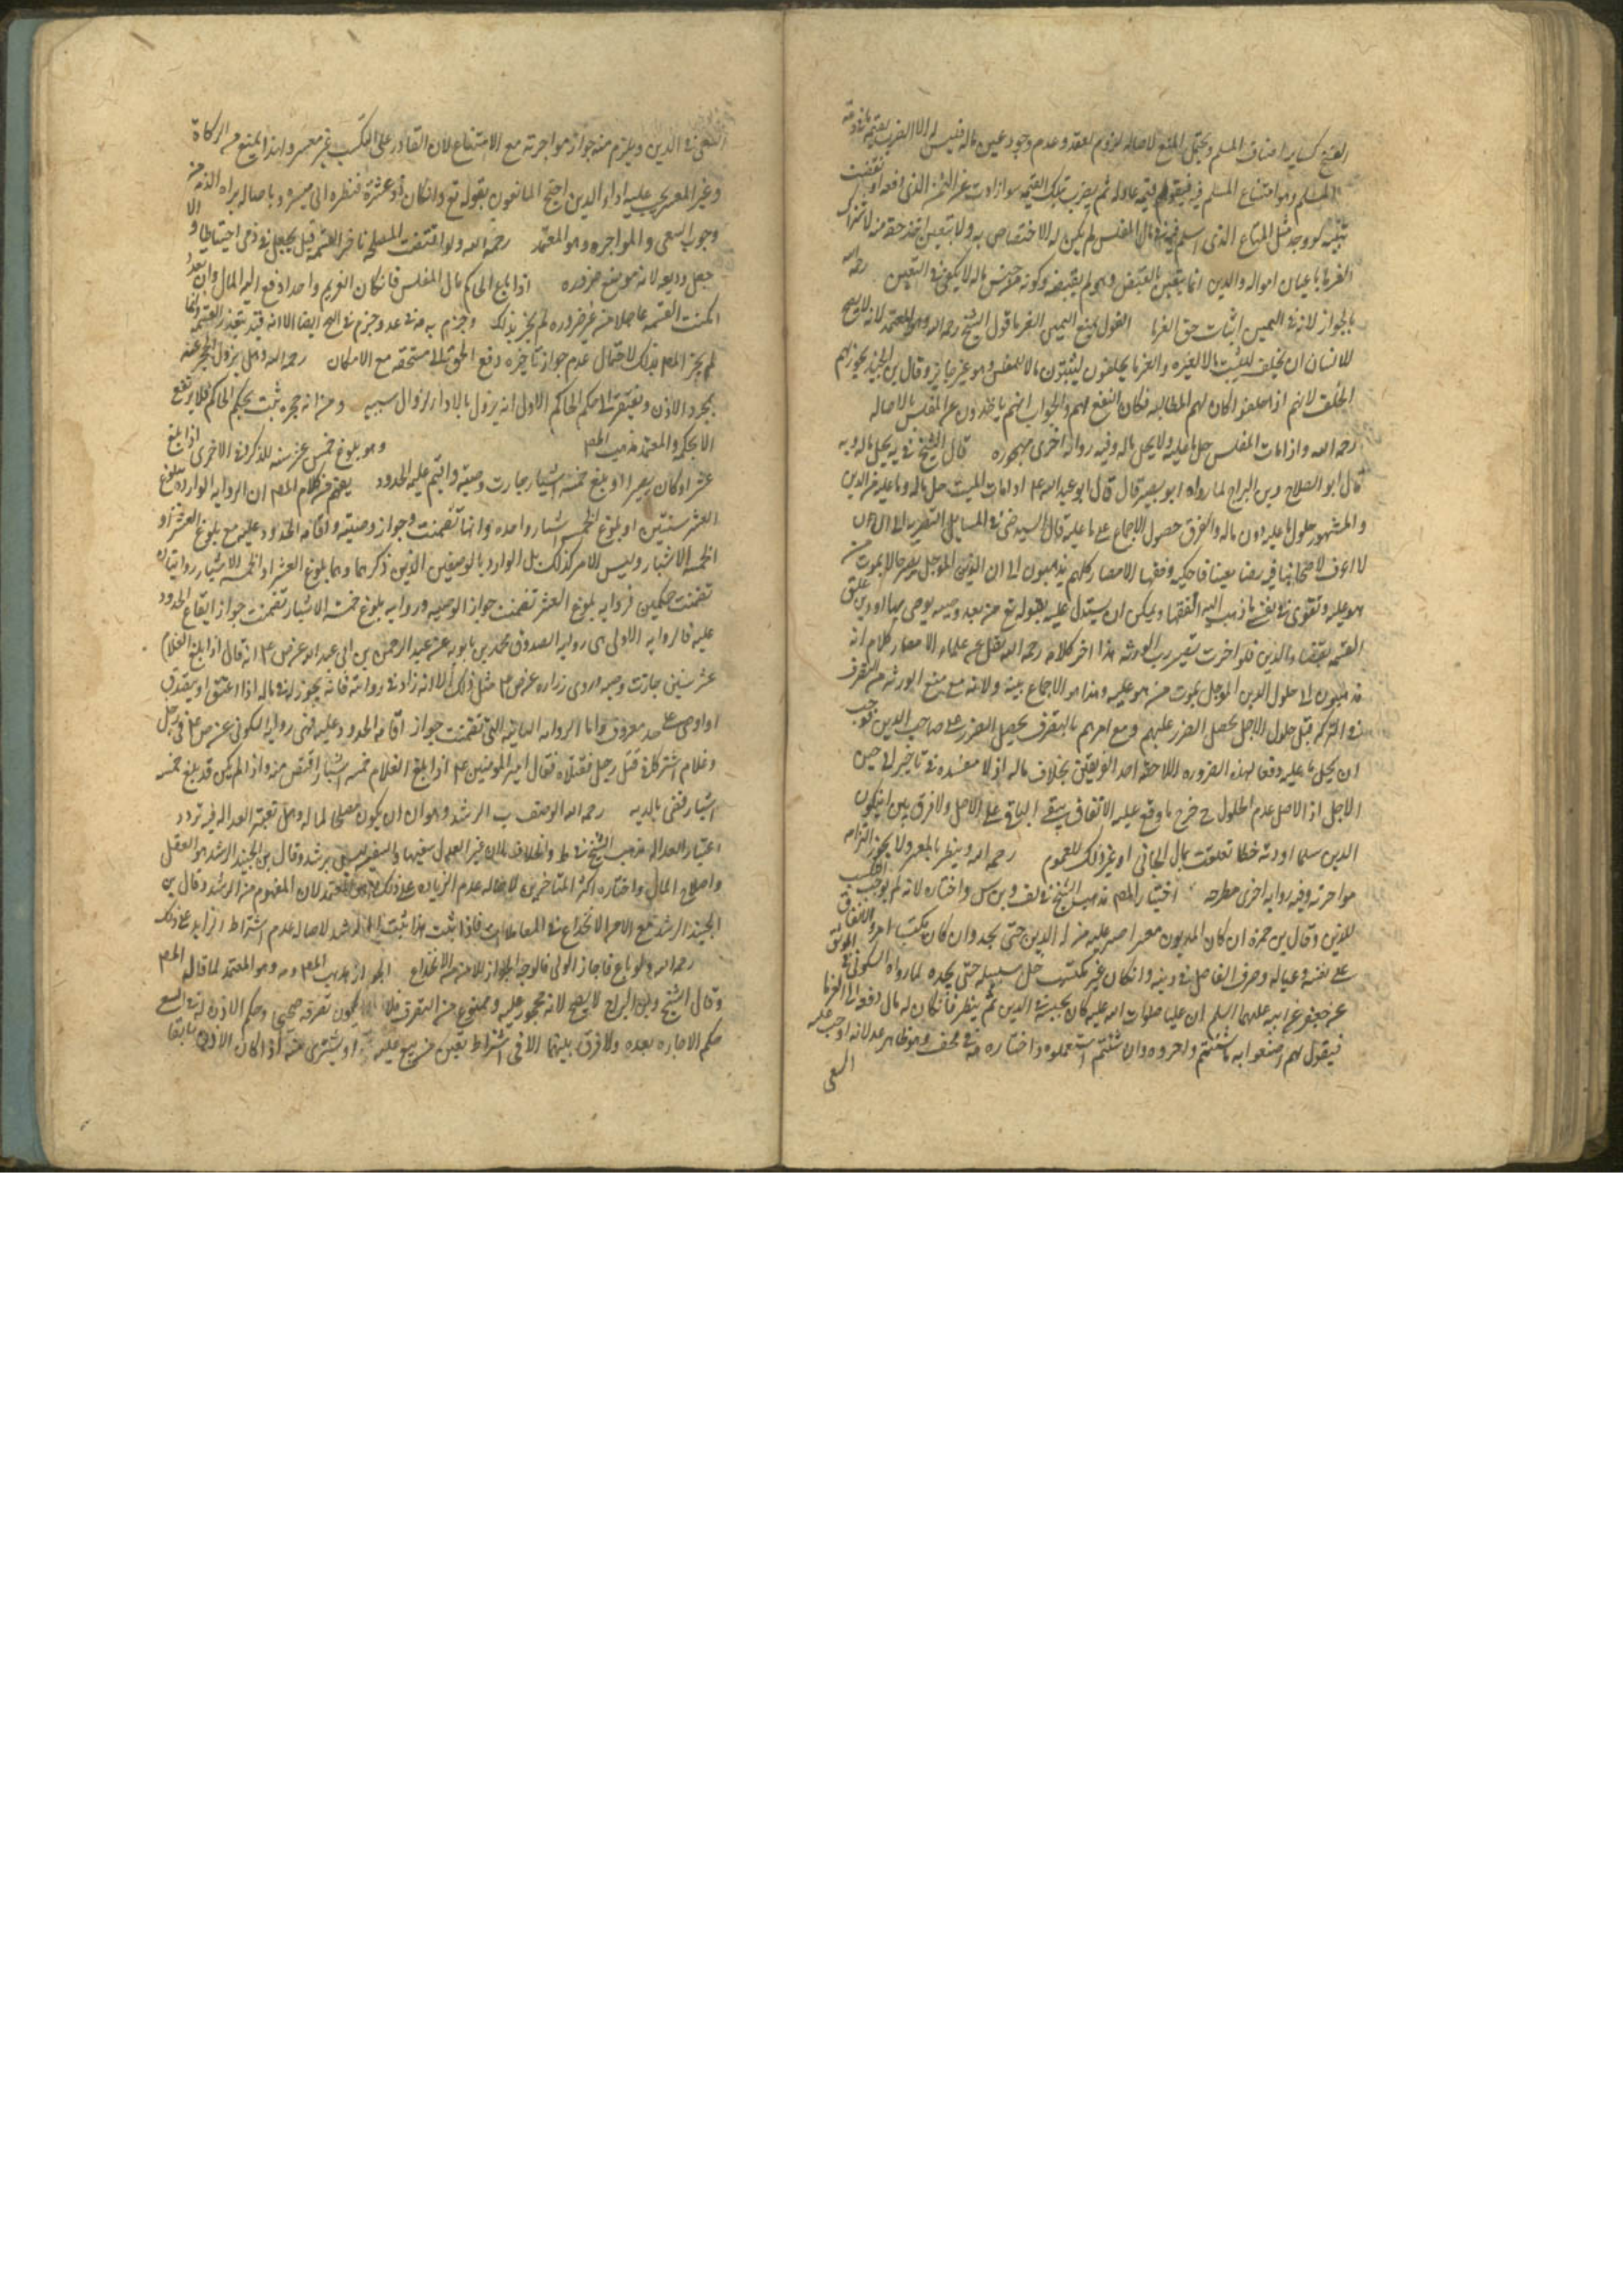 الفسخ كساير اصناف المسلم ويحتمل المنع لاصاله لزوم العقد وعدم وجود عين ماله فليس له الا الضرب بقيمه
المسلم وهو امتناع المسلم فيه فيقوم قيمه عادله ثم يضرب بتلك القيمه سوا زادت عن الثمن الذي دفعه او نقصت
لو وجد مثل المتاع الذي اسلم فيه في مال المفلس لم يكن له الاختصاص به ولا يتعين اخذ حقه منه لاشتراك
الغرما باعيان امواله والدين انما يتعين بالقبض وهو لم يقبضه وكونه من جنس ماله لا يكفي في التعين رحمه الله
بالجواز لان في اليمين اثبات حق الغرما القول بمنع اليمين الغرما قول الشيخ رحمه الله وهو المعتمد لانه لا يصح
للانسان ان يحلف ليثبت مالا لغيره والغرما يحلفون ليثبتون مالا للمفلس وهو غير جايز وقال بن الجنيد يجوز لهم
الحلف لانهم اذا حلفوا كان لهم المطالبه فكان النفع لهم والجواب انهم ياخذون عن المفلس بالاصاله
رحمه الله واذا مات المفلس حل ما عليه ولا يحل ماله وفيه روايه اخرى مهجوره قال الشيخ في يه يحل ماله وبه
قال ابو الصلاح وبن البراج لما رواه ابو بصير قال قال ابو عبد الله ع اذا مات الميت حل ماله وما عليه من الدين
والمشهور حلول ما عليه دون ماله والفرق حصول الاجماع على ما عليه قال السيد رضي في المسايل
لا اعرف لاصحابنا في نصا معينا فاحكيه وفقها الامصار كلهم يذهبون الى ان الدين الموجل يصير حالا بموت من
هو عليه وتقوى في نفسي ما ذهب اليه الفقها ويمكن ان يستدل عليه بقوله تع من بعد وصيه يوصي بها او دين علق
القسمه بقضا الدين فلو اخرت تضرر الورثه هذا اخر كلامه رحمه الله نقل عن علماء الامصار كلام انه
يذهبون الى حلول الدين الموجل بموت من هو عليه وهذا هو الاجماع بعينه ولانه مع منع الورثه من التصرف
في التركه قبل حلول الاجل يحصل الضرر عليهم ومع امرهم بالتصرف يحصل الضرر على صاحب الدين فوجب
ان يحل ما عليه دفعا لهذه الضروره اللاحقه احد الفريقين بخلاف ماله اذ لا مفسده في تاخيره الى حين
الاجل اذ الاصل عدم الحلول خرج ما وقع عليه الاتفاق يبقى الباقي على الاصل ولا فرق بين ان يكون
الدين سلما او ديه خطا تعلقت بمال الجاني او غير ذلك للعموم رحمه الله وينظر بالمعسر ولا يجوز الزامه
مواجرته وفيه روايه اخرى مطرحه اختيار المص مذهب الشيخ في لف وبن س واختاره لانه لم يوجب التكسب
للدين وقال بن حمزه ان كان المديون معسرا صبر عليه من له الدين حتى يجد وان كان مكتسبا امر بالانفاق
على نفسه وعياله وصرف الفاضل في دينه وان كان غير مكتسب خلى سبيله حتى يجده لما رواه السكوني
عن جعفر عن ابيه عليهما السلم ان عليا صلوات الله عليه كان يحبس في الدين ثم ينظر فان كان له مال دفع الى الغرما
فيقول لهم اصنعوا به ما شئتم واجروه وان شئتم استعملوه واختاره في مختلف وهو ظاهر عد لانه اوجب عليه
السعي
السعي في الدين ويلزم منه جواز مواجرته مع الامتناع لان القادر على التكسب غير معسر ولهذا يمنع من الزكاة
وغير المعسر يجب عليه اداء الدين احتج المانعون بقوله تع وان كان ذو عسرة فنظره الى ميسره وباصاله براه الذمه من
وجوب السعي والمواجره وهو المعتمد رحمه الله ولو اقتضت المصلحه تاخر القسمه قيل يجعل في ذمي احتياطا والا
جعل وديعه لانه موضع ضروره اذا باع الحاكم مال المفلس فان كان الغريم واحدا دفع اليه المال وان تعدد
امكنت القسمه عاجلا من غير ضروره لم يجز ذلك وجزم به في عد وجزم في ايضا الا انه قيد بتعذر القسمه وانما
لم يجز المص بذلك لاحتمال عدم جواز تاخيره دفع الحق الى مستحقه مع الامكان رحمه الله وهل يزول الحجر عنه
بمجرد الاذن ويفتقر الى حكم الحاكم الاولى انه يزول بالاداء لزوال سببه ومن انه حجر ثبت بحكم الحاكم فلا يرتفع
الا بحكمه والمعتمد مذهب المص وهو بلوغ خمس عشر سنه للذكر وفي الاخرى اذا بلغ
عشرا وكان بصيرا او بلغ خمسه اشبار جازت وصيته واقيم عليه الحدود يفهم من كلام المص ان الروايه الوارده ببلوغ
العشر سنين او بلوغ الخمس اشبار واحده وانها تضمنت جواز وصيته واقامه الحدود عليه مع بلوغ العشر او
الخمسه الاشبار وليس الامر كذلك بل الوارد بالوصفين الذين ذكرهما وهما بلوغ العشر او الخمسه الاشبار روايتان
تضمنت حكمين فروايه بلوغ العشر تضمنت جواز الوصيه وروايه بلوغ خمسه الاشبار تضمنت جواز ايقاع الحدود
عليه فالروايه الاولى هي روايه الصدوق محمد بن بابويه عن عبد الرحمن بن ابي عبد الله عن ص ع انه قال اذا بلغ الغلام
عشر سنين جازت وصيه وروى زراره عن ص ع مثل ذلك الا انه زاد في روايته فانه يجوز له في ماله اذا اعتق او تصدق
او اوصى على حد معروف واما الروايه الثانيه التي تضمنت جواز اقامه الحدود عليه فهي روايه السكوني عن ص ع في رجل
وغلام اشتركا في قتل رجل فقتلاه فقال امير المومنين ع اذا بلغ الغلام خمسه اشبار اقتص منه واذا لم يكن قد بلغ خمسه
اشبار قضى بالديه رحمه الله الوصف ب الرشد وهو ان يكون مصلحا لماله وهل تعتبر العداله فيه تردد
اعتبار العداله مذهب الشيخ في ط والخلاف لان غير العدل سفيها والسفيه ليس برشد وقال بن الجنيد الرشد هو العقل
واصلاح المال واختاره اكثر المتاخرين لاصاله عدم الزياده على ذلك وهو المعتمد لان المفهوم من الرشد وقال بن
الجنيد الرشد مع الامر الانخداع في المعاملات فاذا ثبت هذا ثبت الرشد لاصاله عدم اشتراط الزايد على ذلك
رحمه الله ولو باع فاجاز الولي فالوجه الجواز للامن من الانخداع الجواز مذهب المص وهو المعتمد لما قاله المص
وقال الشيخ وبن البراج لا يصح لانه محجور عليه وممنوع من التصرف فلا يكون تصرفه صحيحا وحكم الاذن له في البيع
حكم الاجازه بعده ولا فرق بينهما الا في اشتراط تعين من يبيع عليه او يشتري منه اذا كان الاذن سابقا